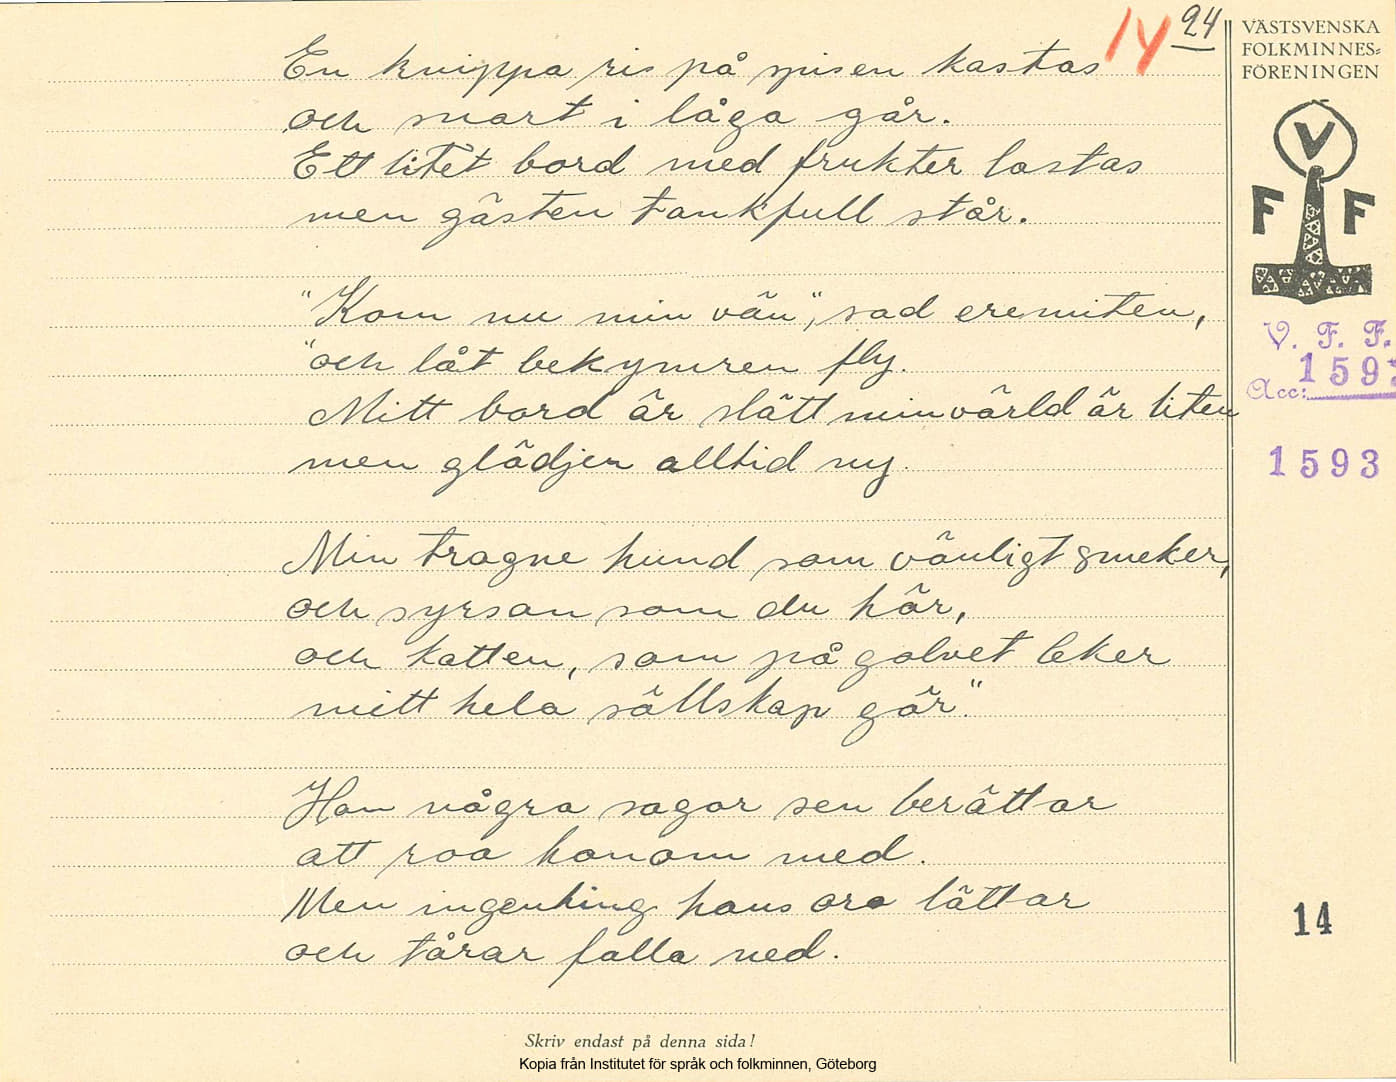 14 24
VÄSTSVENSKA
FOLKMINNES=
FÖRENINGEN
En knippa ris på spisen kastas
och snart i låga går.
Ett litet bord med frukter lastas
men gästen tankfull står.
V
F F
"Kom nu min vän", sad eremiten,
"och låt bekymren fly.
Mitt bord är slätt min värld är liten
men glädjen alltid ny.
V. F. F.
Acc: 1593
1593
Min trogne hund som vänligt smeker,
och syrsan som du hör,
och katten, som på golvet leker
mitt hela sällskap gör."
Han några sagor sen berättar
att roa honom med.
Men ingenting hans oro lättar
och tårar falla ned.
14
Skriv endast på denna sida!
Kopia från Institutet för språk och folkminnen, Göteborg